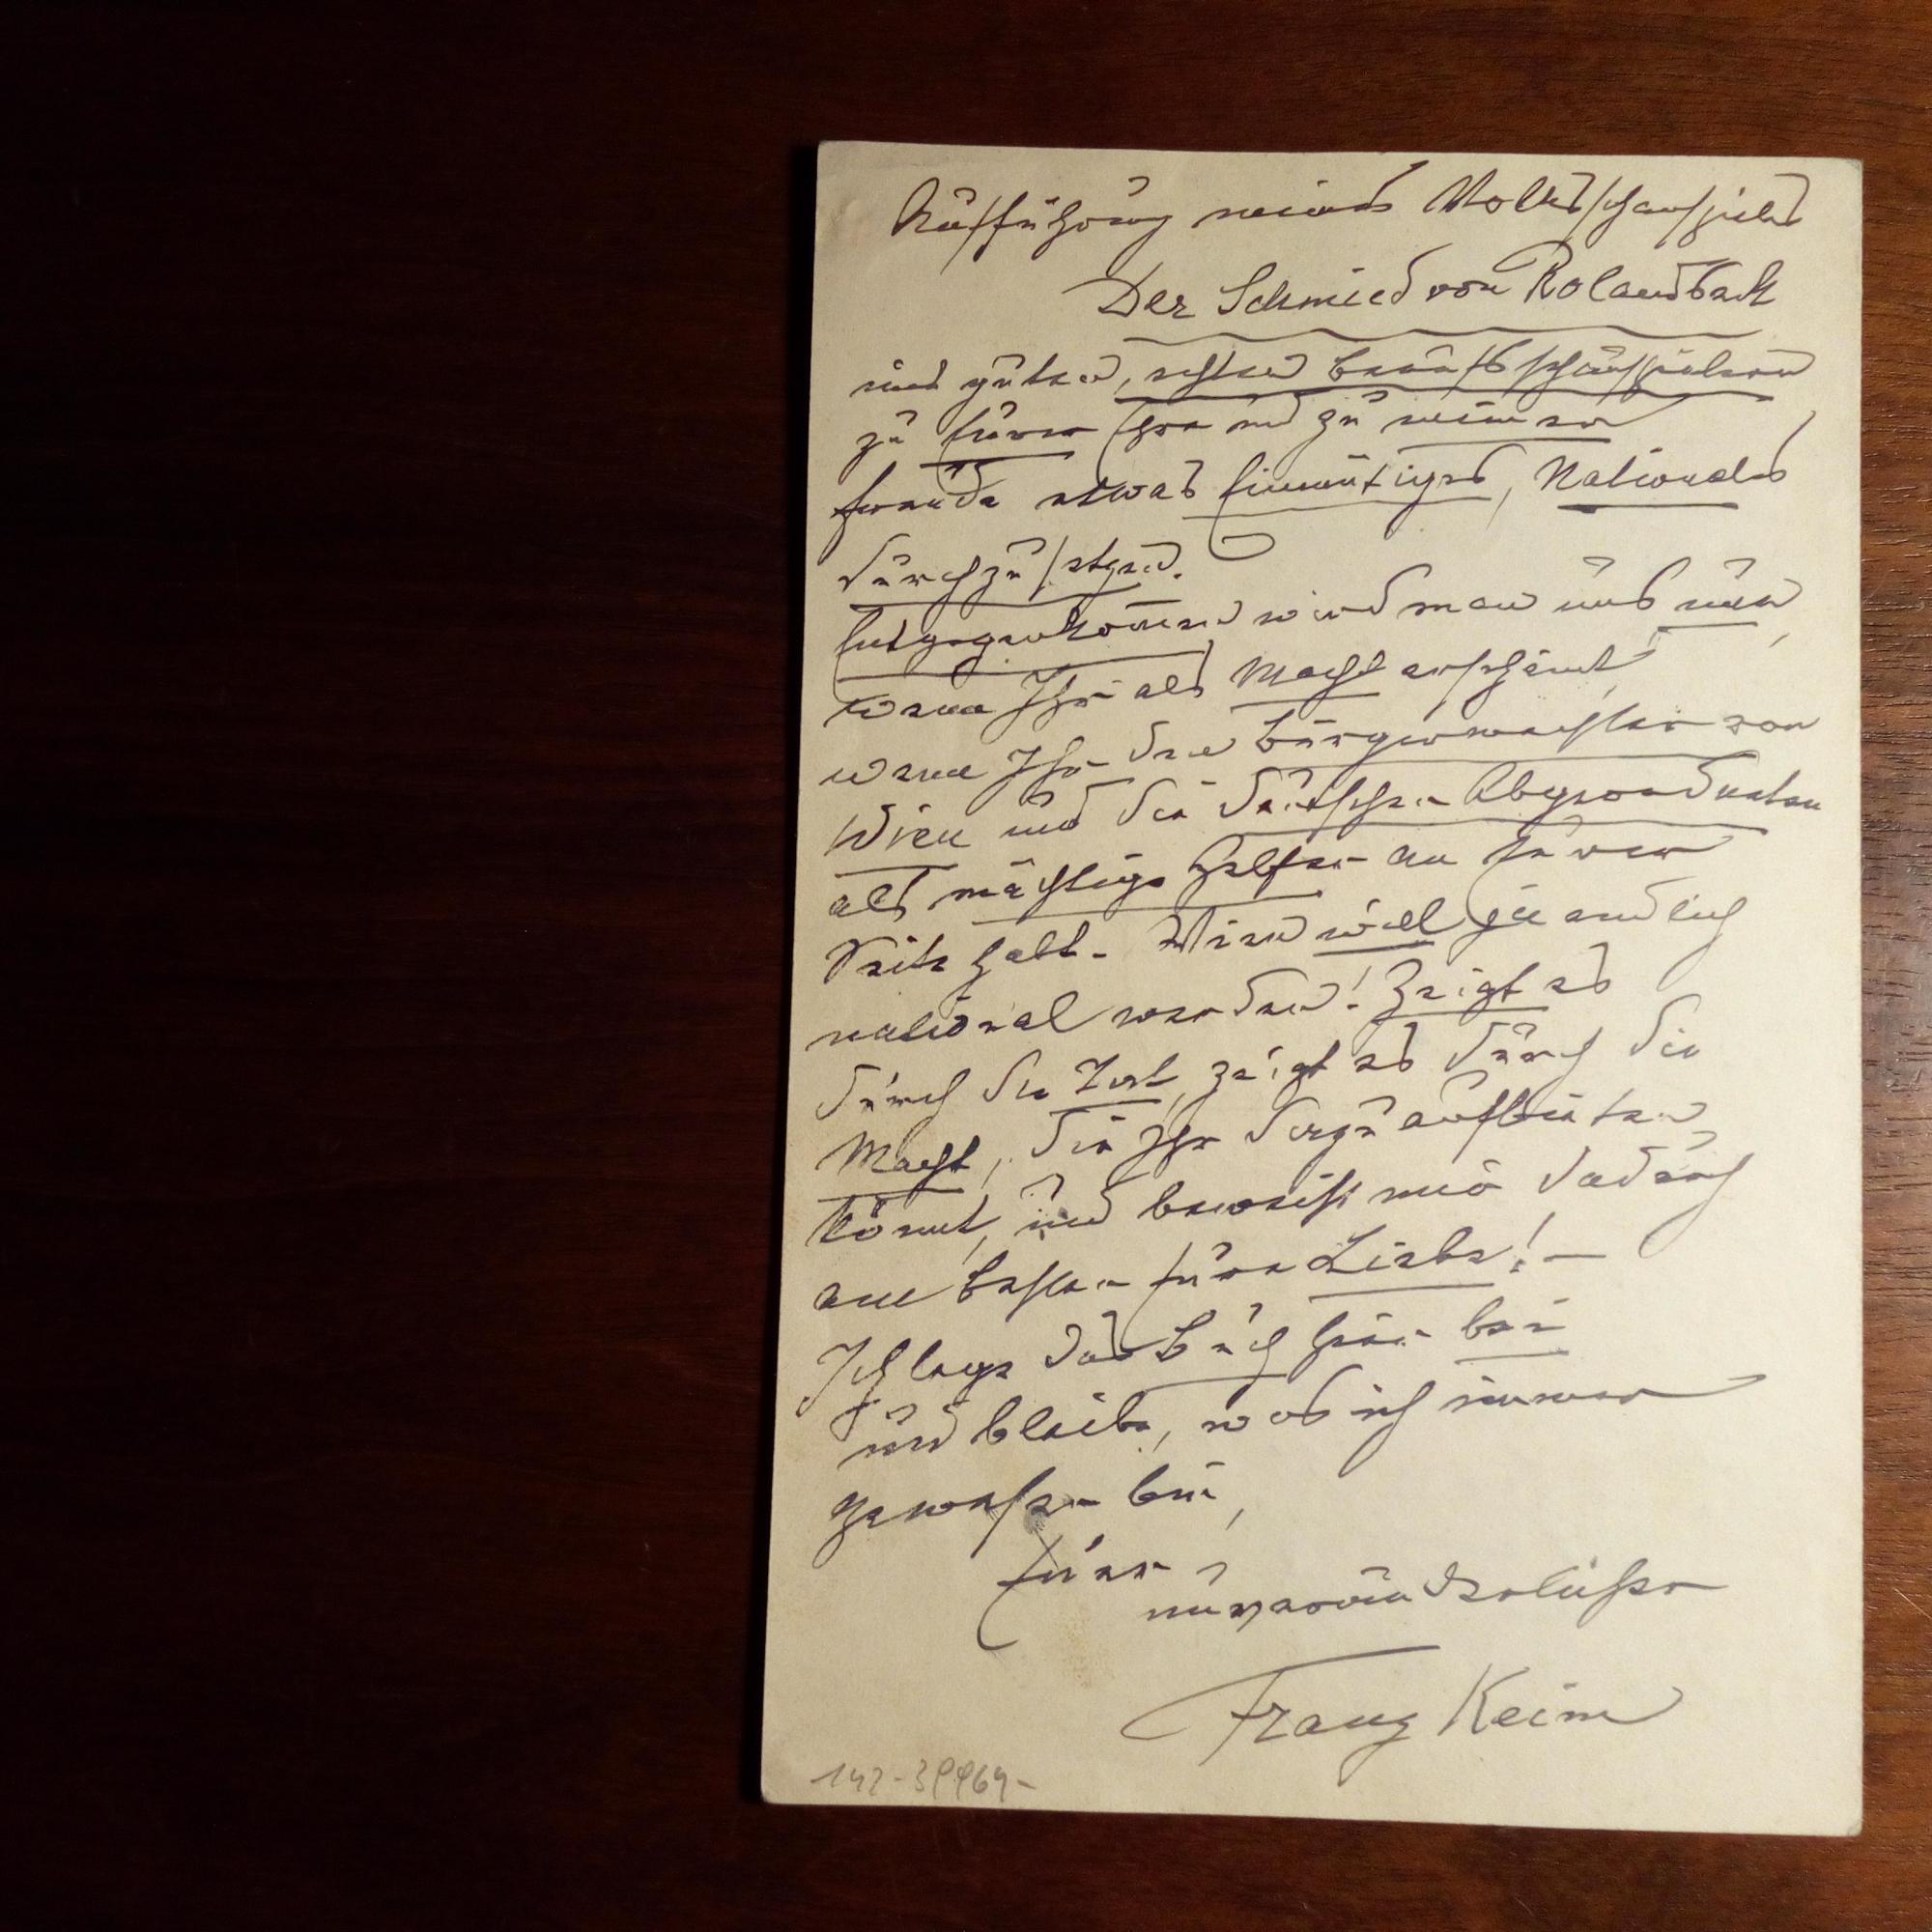 Aufführung meines Volksschauspieles
Der Schmied von Rolandseck
mit guten, echten Berufsschauspielern
zu Eurer Ehre und zu meiner
Freude etwas Einmütiges, Nationales
durchzusetzen.
Entgegenkommen wird man uns nur,
wenn Ihr als Macht erscheint,
wenn Ihr den Bürgermeister von
Wien und die deutschen Abgeordneten
als mächtige Helfer an Eurer
Seite habt. Wien will ja endlich
national werden! Zeigt es
durch die Tat, zeigt es durch die
Macht, die Ihr dazu aufbieten
könnt, und beweist mir dadurch
am besten Eure Liebe! –
Ich lege das Buch hier bei
und bleibe, was ich immer
gewesen bin,
Euer
unveränderlicher
Franz Keim
142-39964-